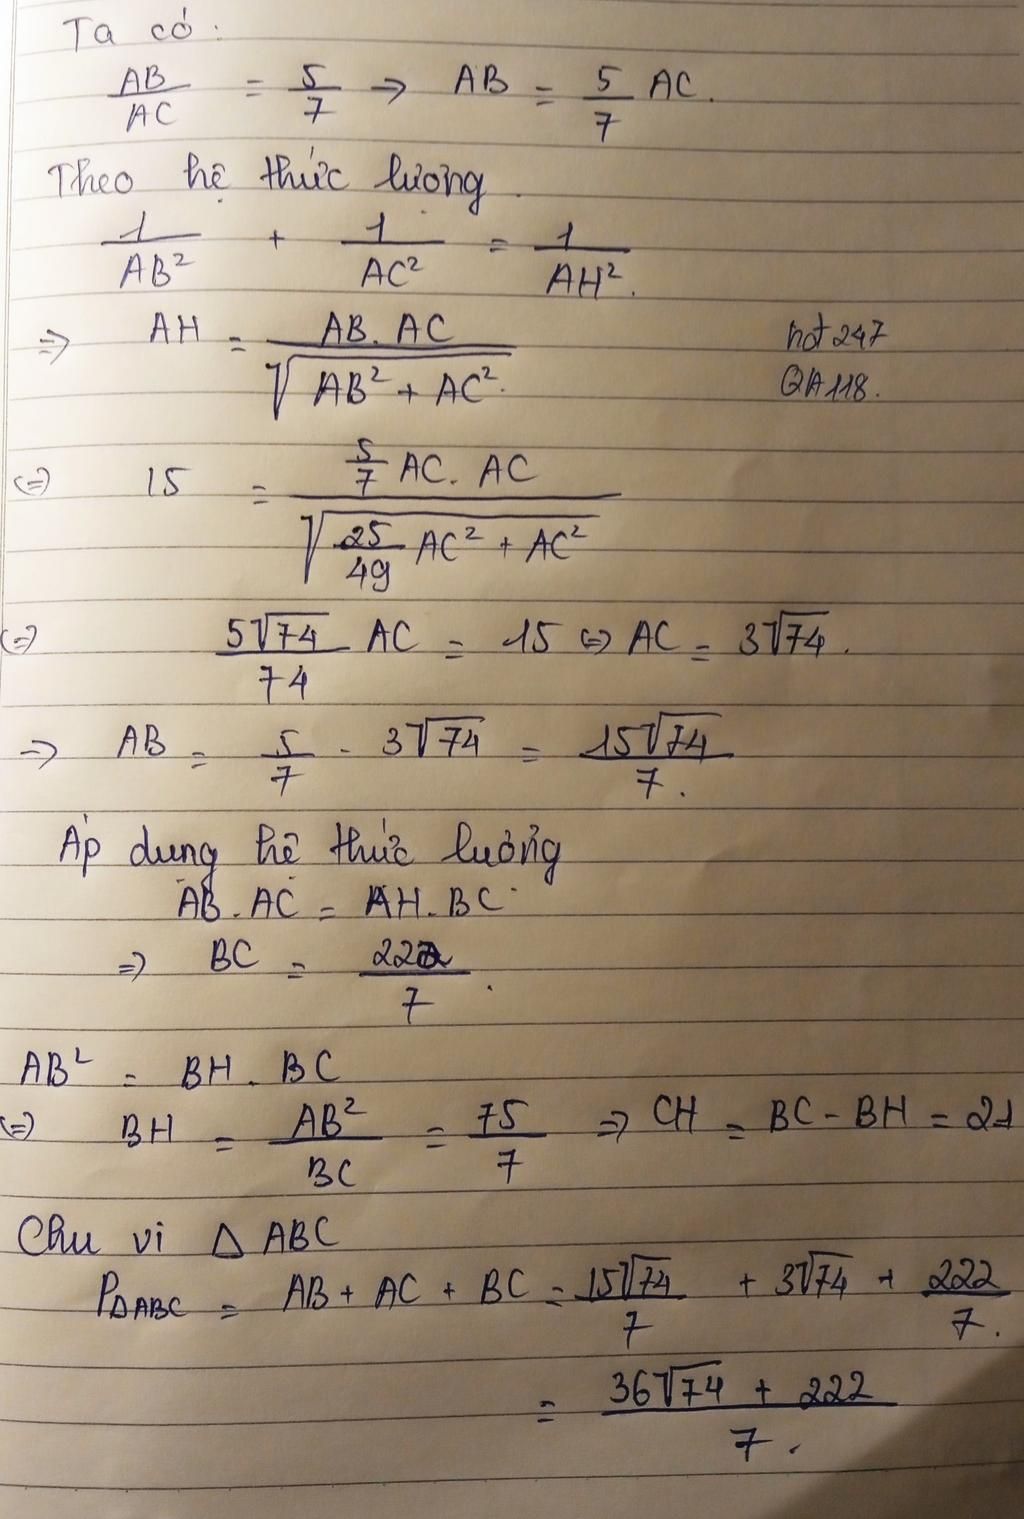 Ta có:
AB/AC = 5/7 → AB = 5/7 AC.
Theo hệ thức lương.
1/AB² + 1/AC² = 1/AH².
⇒ AH = AB.AC/√(AB² + AC²)
hot247
QA118.
⇔ 15 = (5/7 AC. AC)/√(25/49 AC² + AC²)
⇔ 5√74/74 AC = 15 ⇔ AC = 3√74.
⇒ AB = 5/7 · 3√74 = 15√74/7.
Áp dung hê thức lường
AB.AC = AH.BC
⇒ BC = 222/7.
AB² = BH.BC
⇔ BH = AB²/BC = 75/7 ⇒ CH = BC - BH = 21
Chu vi Δ ABC
PΔABC = AB + AC + BC = 15√74/7 + 3√74 + 222/7.
= (36√74 + 222)/7.